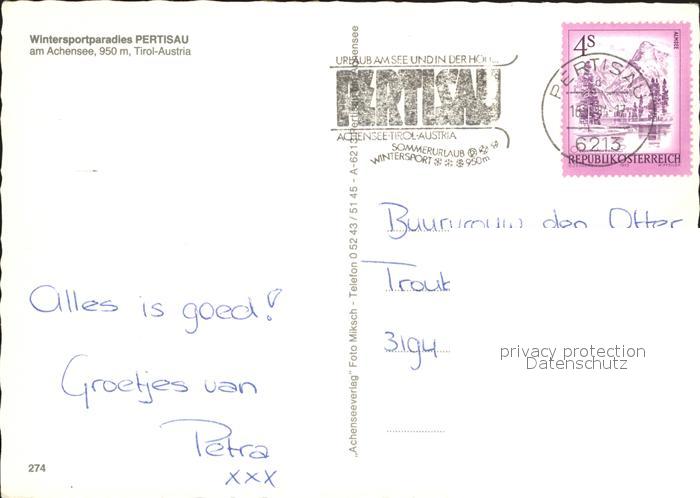 Wintersportparadies PERTISAU
am Achensee, 950 m, Tirol-Austria
Alles is goed!
Groetjes van
Petra
xxx
274
„Achenseeverlag“ Foto Miksch - Telefon 0 52 43 / 51 45 - A-6213 Pertisau am Achensee
URLAUB AM SEE UND IN DER HÖHE
PERTISAU
ACHENSEE-TIROL-AUSTRIA
SOMMERURLAUB
WINTERSPORT 950m
4S
ALMSEE
PERTISAU
6213
REPUBLIK ÖSTERREICH
den Otter
3194
privacy protection
Datenschutz